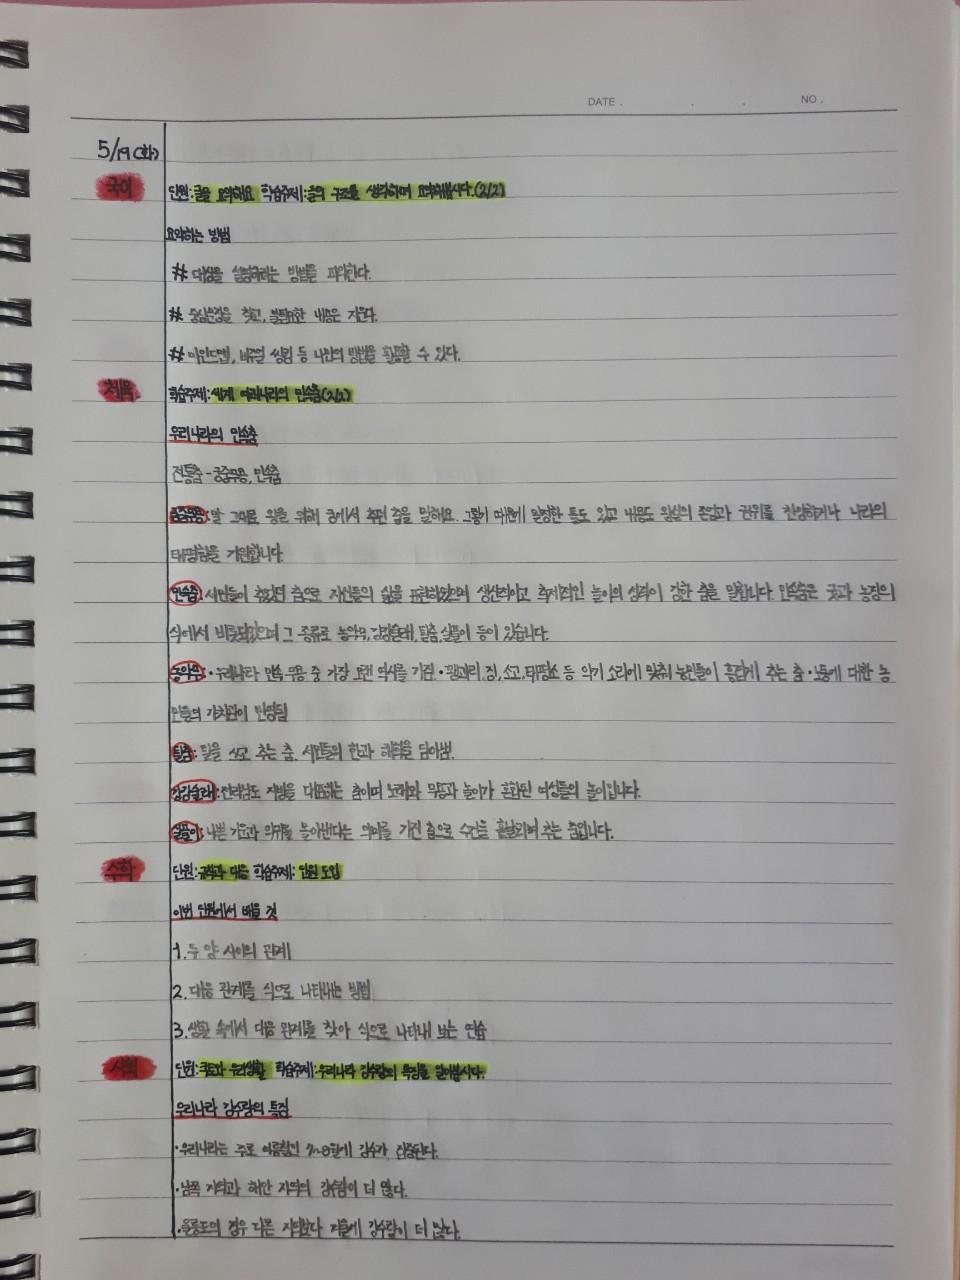 DATE . . . NO .
5/19(화)
국어 단원:글을 요약해요 학습주제:글의 구조를 생각하며 요약해봅시다.(2/2)
요약하는 방법
# 대상을 설명하려는 방법을 파악한다.
# 중심문장을 찾고, 불필요한 내용은 지운다.
# 마인드맵, 비주얼 씽킹 등 나만의 방법을 활용할 수 있다.
체육 학습주제:세계 여러나라의 민속춤(2/2)
우리나라의 민속춤
전통춤-궁중무용, 민속춤
궁중무용:말 그대로 왕을 위해 궁에서 추던 춤을 말해요. 그렇기 때문에 일정한 틀도 있고 내용도 왕실의 존엄과 권위를 찬양하거나 나라의
태평함을 기원합니다.
민속춤:서민들이 추었던 춤으로 자신들의 삶을 표현하였으며 생산적이고 축제적인 놀이의 성격이 강한 춤을 말합니다. 민속춤은 굿과 농경의
식에서 비롯되었으며 그 종류로 농악무,강강술래,탈춤,살풀이 등이 있습니다.
농악무:·우리나라 민속 무용 중 가장 오랜 역사를 가짐.·꽹과리, 징, 소고, 태평소 등 악기 소리에 맞춰 농민들이 흥겹게 추는 춤·노동에 대한 농
민들의 가치관이 반영됨
탈춤:탈을 쓰고 추는 춤. 서민들의 한과 해학을 담아냄.
강강술래:전라남도 지방을 대표하는 춤이며 노래와 무용과 놀이가 혼합된 여성들의 놀이입니다.
살풀이:나쁜 기운과 악귀를 몰아낸다는 의미를 가진 춤으로 수건을 흩날리며 추는 춤입니다.
수학 단원:규칙과 대응 학습주제:단원 도입
이번 단원에서 배울 것
1.두 양 사이의 관계
2.대응 관계를 식으로 나타내는 방법
3.생활 속에서 대응 관계를 찾아 식으로 나타내 보는 연습
사회 단원:국토와 우리생활 학습주제:우리나라 강수량의 특징을 알아봅시다.
우리나라 강수량의 특징
·우리나라는 주로 여름철인 7~8월에 강수가 집중된다.
·남쪽 지역과 해안 지역의 강수량이 더 많다.
·울릉도의 경우 다른 지역보다 겨울에 강수량이 더 많다.